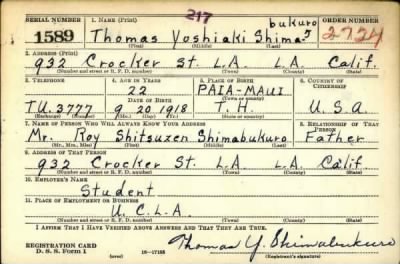 SERIAL NUMBER 1. NAME (Print) 217 bukuro ORDER NUMBER
1589 Thomas Yoshiaki Shima- 2724
(First) (Middle) (Last)
2. ADDRESS (Print)
932 Crocker St. L.A. L.A. Calif.
(Number and street or R. F. D. number) (Town) (County) (State)
3. TELEPHONE 4. AGE IN YEARS 5. PLACE OF BIRTH 6. COUNTRY OF CITIZENSHIP
22 PAIA-MAUI
DATE OF BIRTH (Town or county)
TU. 3777 9 20 1918 T. H. U. S. A.
(Exchange) (Number) (Mo.) (Day) (Yr.) (State or country)
7. NAME OF PERSON WHO WILL ALWAYS KNOW YOUR ADDRESS 8. RELATIONSHIP OF THAT PERSON
Mr. Roy Shitsuzen Shimabukuro Father
(Mr., Mrs., Miss) (First) (Middle) (Last)
9. ADDRESS OF THAT PERSON
932 Crocker St. L.A. L.A. Calif.
(Number and street or R. F. D. number) (Town) (County) (State)
10. EMPLOYER'S NAME
Student
11. PLACE OF EMPLOYMENT OR BUSINESS
U.C.L.A.
(Number and street or R. F. D. number) (Town) (County) (State)
I AFFIRM THAT I HAVE VERIFIED ABOVE ANSWERS AND THAT THEY ARE TRUE.
REGISTRATION CARD
D. S. S. Form 1 16-17105 Thomas Y. Shimabukuro
(Registrant's signature)